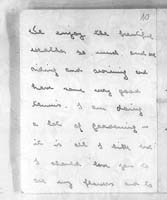 10
We enjoy the beautiful
weather so much and we
riding and swimming and
have some very good
tennis. I am doing
a lot of gardening -
it is all I do and
I should love you to
see my flowers and to